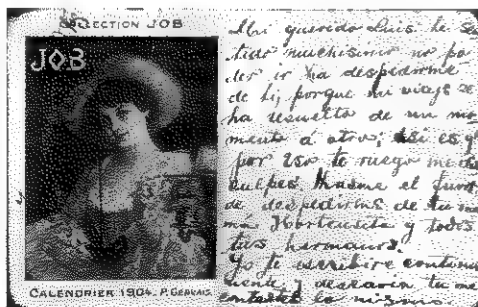 COLLECTION JOB
JOB
CALENDRIER 1904 - P. GERVAIS
Mi querido Luis he sen
tido muchisimo no po
der ir ha despedirme
de ti, porque mi viaje se
ha resuelto de un mo
mento á otro; asi es q
por eso te ruego me dis
culpes. Hazme el favor
de despedirme de tu ma
má Hortensita y todos
tus hermanos.
Yo te escribire continua
mente, y desearia tu me
contastes lo mismo